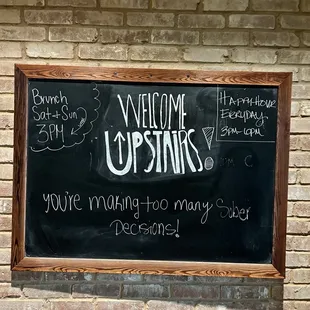 Brunch
Sat + Sun
3PM
WELCOME
UPSTAIRS!
Happy Hour
Everyday
3pm-6pm
You're making too many Sober
Decisions!